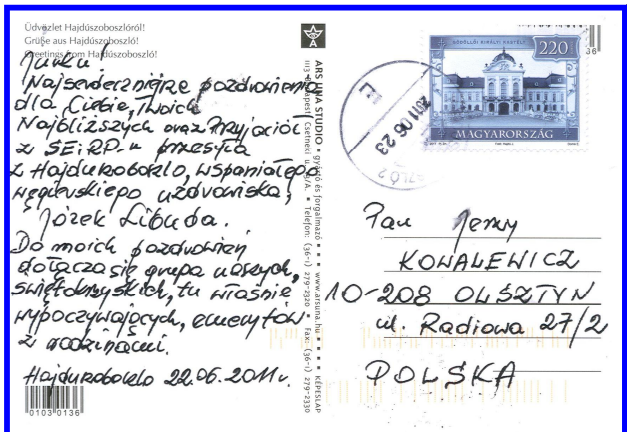 Üdvözlet Hajdúszoboszlóról!
Grüße aus Hajdúszoboszló!
Greetings from Hajdúszoboszló!
Jurku!
Najserdeczniejsze pozdrowienia
dla Ciebie, Twoich
Najbliższych oraz Przyjaciół
z SEiRP-u przesyła
z Hajduroboszlo, wspaniałego
węgierskiego uzdrowiska,
Józek Libuda.
Do moich pozdrowień
dołącza się grupa naszych,
świętokrzyskich, tu właśnie
wypoczywających, emerytów
z rodzinami.
Hajduroboszlo 22.06.2011r.
01030136
ARS UNA STUDIO • gyártó és forgalmazó • www.arsuna.hu • KÉPESLAP
1113 Budapest, Csetneki u. Telefon: (36-1) 279-2320 • Fax: (36-1) 279-2330
GÖDÖLLŐI KIRÁLYI KASTÉLY
220
MAGYARORSZÁG
2011 06 23
36
Pan Jerzy
KOWALEWICZ
10-208 OLSZTYN
ul. Radiowa 27/2
POLSKA